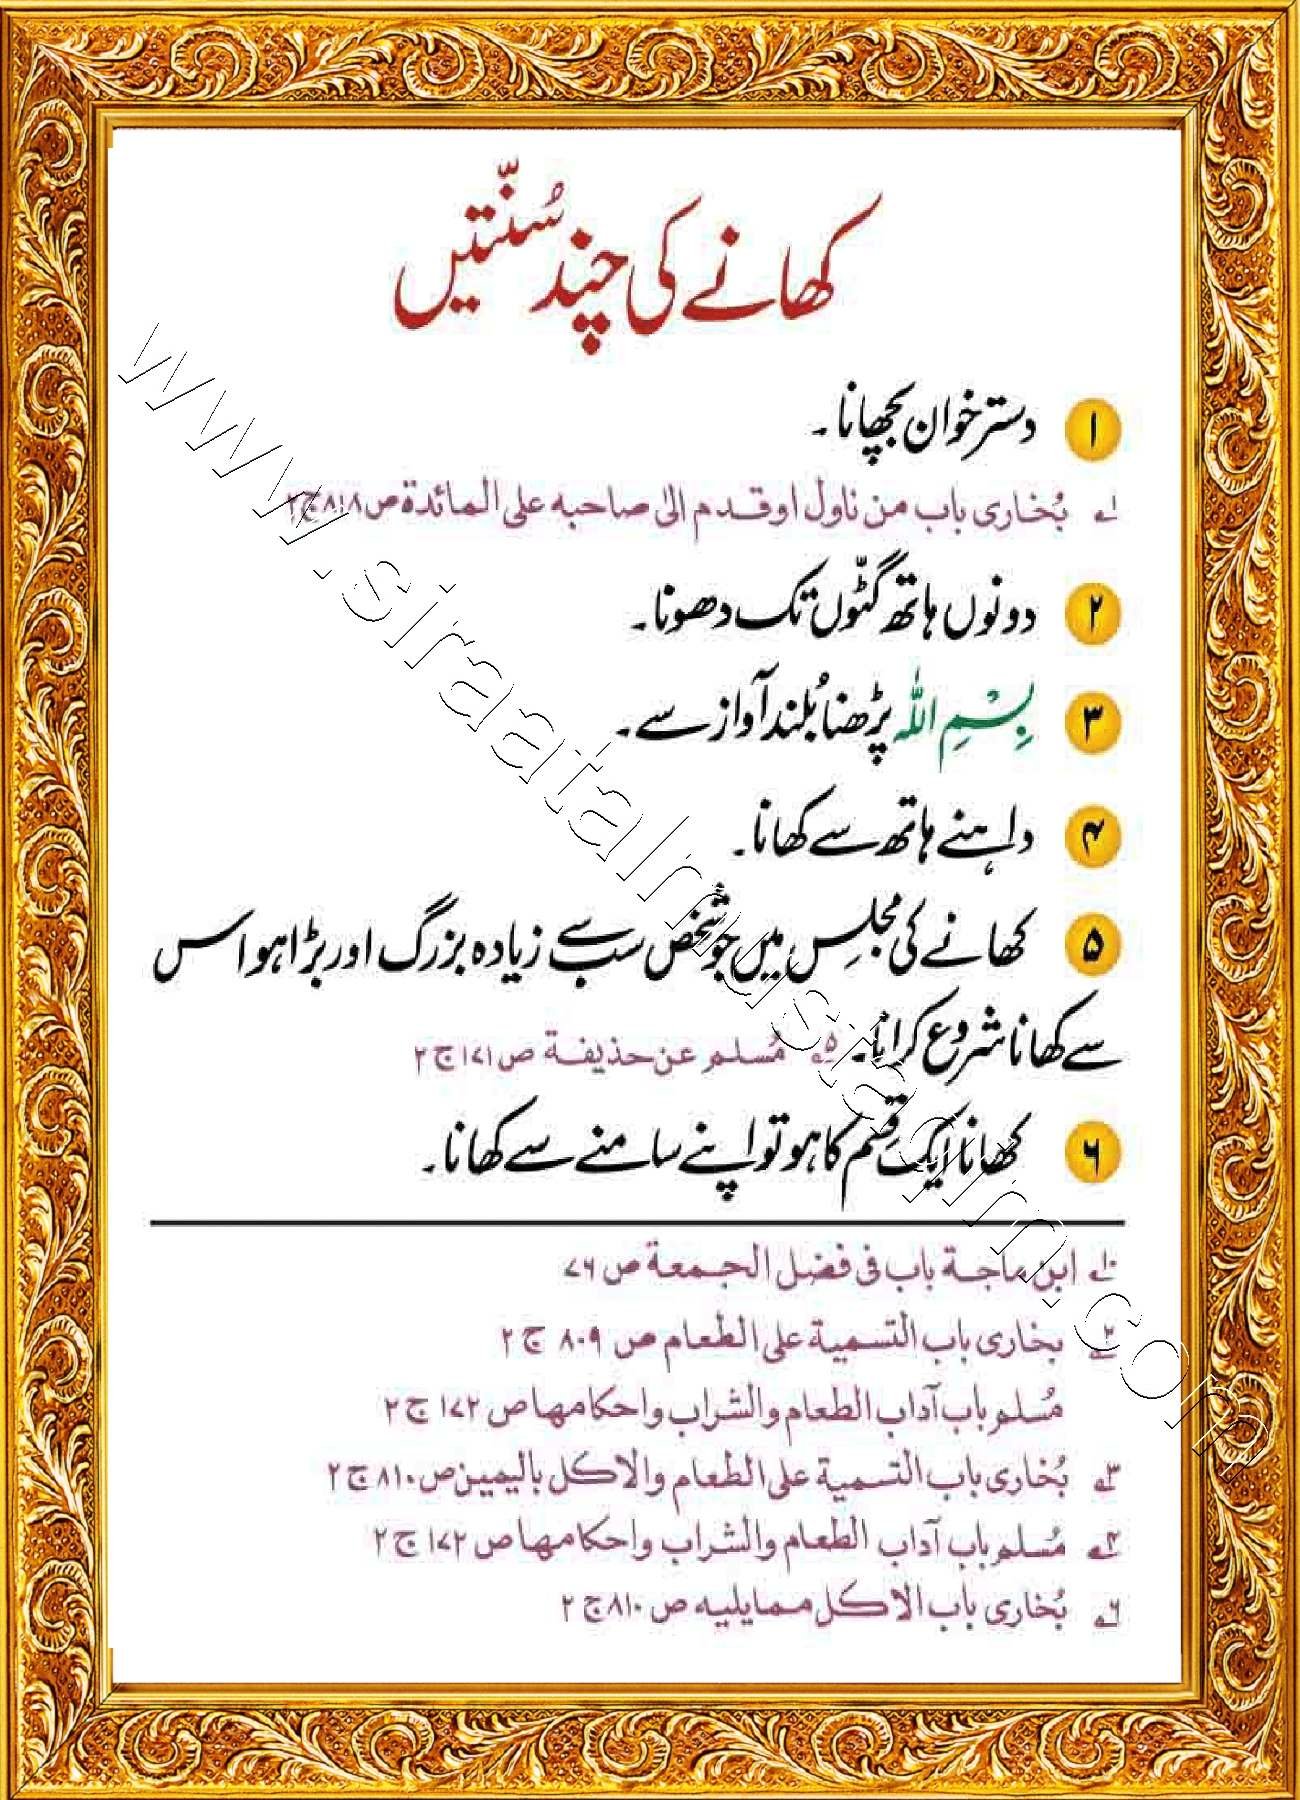 کھانے کی چند سُنّتیں
۱ دسترخوان بچھانا۔
۱؎ بُخاری باب من ناول اوقدم الیٰ صاحبه علی المائدة ص ۸۱۸ ج ۲
۲ دونوں ہاتھ گٹّوں تک دھونا۔
۳ بِسْمِ اللّٰہ پڑھنا بُلند آواز سے۔
۴ داہنے ہاتھ سے کھانا۔
۵ کھانے کی مجلِس میں جو شخص سب سے زیادہ بزرگ اور بڑا ہو اس
سے کھانا شروع کرانا۔ ۵؎ مُسلم عن حذیفة ص ۱۷۱ ج ۲
۶ کھانا ایک قِسم کا ہو تو اپنے سامنے سے کھانا۔
۱؎ ابن ماجة باب فی فضل الجمعة ص ۷۶
۲؎ بخاری باب التسمیة علی الطعام ص ۸۰۹ ج ۲
مُسلم باب آداب الطعام والشراب واحکامها ص ۱۷۲ ج ۲
۳؎ بُخاری باب التسمیة علی الطعام والاکل بالیمین ص ۸۱۰ ج ۲
۴؎ مُسلم باب آداب الطعام والشراب واحکامها ص ۱۷۲ ج ۲
۶؎ بُخاری باب الاکل ممایلیه ص ۸۱۰ ج ۲
www.siraatalmustaqim.com